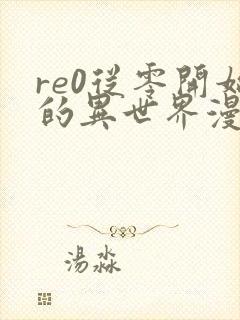 re0從零開始
的異世界漫
湯淼